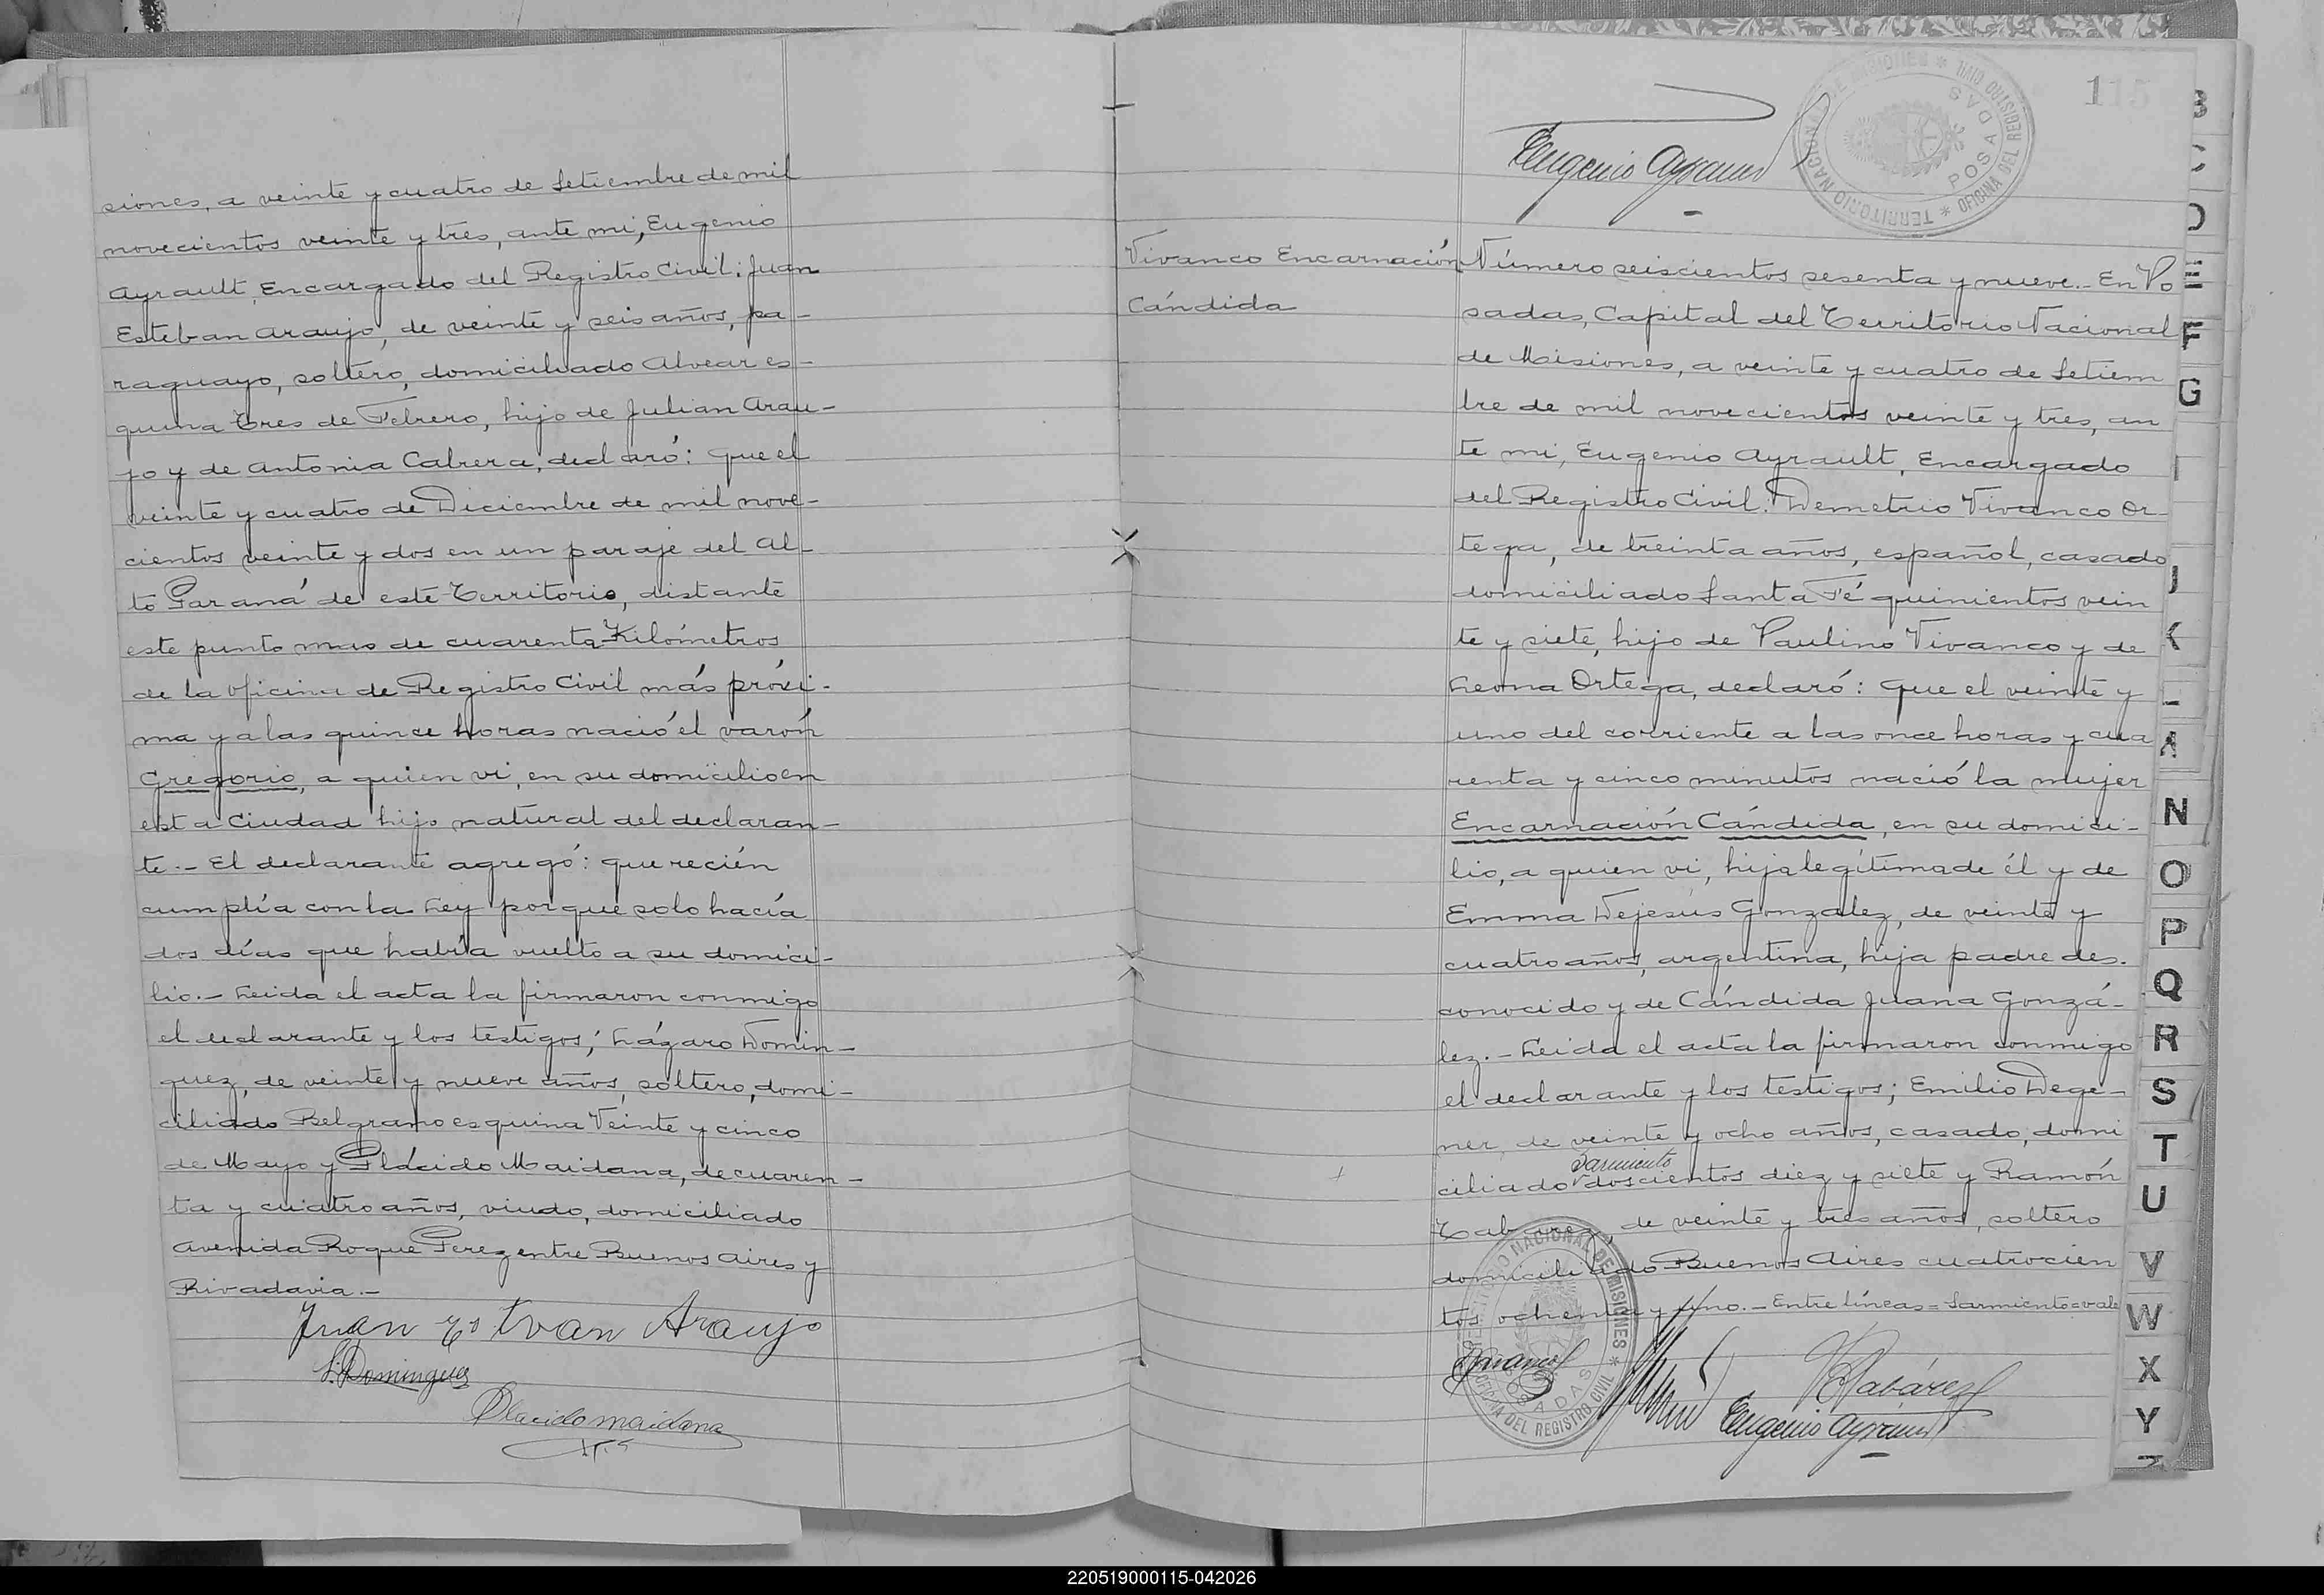 siones, a veinte y cuatro de Setiembre de mil
novecientos veinte y tres, ante mi, Eugenio
Ayrault, Encargado del Registro Civil: Juan
Esteban Araujo, de veinte y seis años, pa-
raguayo, soltero, domiciliado Alvear es-
quina Tres de Febrero, hijo de Julian Arau-
jo y de Antonia Cabrera, declaró: Que el
veinte y cuatro de Diciembre de mil nove-
cientos veinte y dos en un paraje del Al-
to Paraná de este Territorio, distante
este punto mas de cuarenta Kilómetros
de la oficina de Registro Civil más próxi-
ma y a las quince horas nació el varón
Gregorio, a quien vi, en su domicilio en
esta Ciudad hijo natural del declaran-
te.- El declarante agregó: que recién
cumplía con la Ley porque solo hacía
dos días que había vuelto a su domici-
lio.- Leida el acta la firmaron conmigo
el declarante y los testigos; Lázaro Domin-
guez, de veinte y nueve años, soltero, domi-
ciliado Belgrano esquina Veinte y cinco
de Mayo y Plácido Maidana, de cuaren-
ta y cuatro años, viudo, domiciliado
Avenida Roque Perez entre Buenos Aires y
Rivadavia.-
Juan Estvan Araujo
L. Dominguez
Placido maidana
115
TERRITORIO NACIONAL DE MISIONES * OFICINA DEL REGISTRO CIVIL *
POSADAS
Eugenio Ayrault
Vivanco Encarnación
Cándida
Número seiscientos sesenta y nueve.- En Po
sadas, Capital del Territorio Nacional
de Misiones, a veinte y cuatro de Setiem
bre de mil novecientos veinte y tres, an
te mi, Eugenio Ayrault, Encargado
del Registro Civil: Demetrio Vivanco Or-
tega, de treinta años, español, casado
domiciliado Santa Fé quinientos vein
te y siete, hijo de Paulino Vivanco y de
Leona Ortega, declaró: Que el veinte y
uno del corriente a las once horas y cua
renta y cinco minutos nació la mujer
Encarnación Cándida, en su domici-
lio, a quien vi, hija legítima de él y de
Emma Dejesús Gonzalez, de veinte y
cuatro años, argentina, hija padre des-
conocido y de Cándida Juana Gonzá-
lez.- Leida el acta la firmaron conmigo
el declarante y los testigos; Emilio Dege-
ner, de veinte y ocho años, casado, domi
Sarmiento
ciliado doscientos diez y siete y Ramón
Tabarez, de veinte y tres años, soltero
domiciliado Buenos Aires cuatrocien
tos ochenta y uno.- Entre líneas = Sarmiento = vale
TERRITORIO NACIONAL DE MISIONES * OFICINA DEL REGISTRO CIVIL *
POSADAS
RTabárez
Eugenio Ayrault
B
C
D
E
F
G
I
J
K
L
N
O
P
Q
R
S
T
U
V
W
X
Y
Z
220519000115-042026